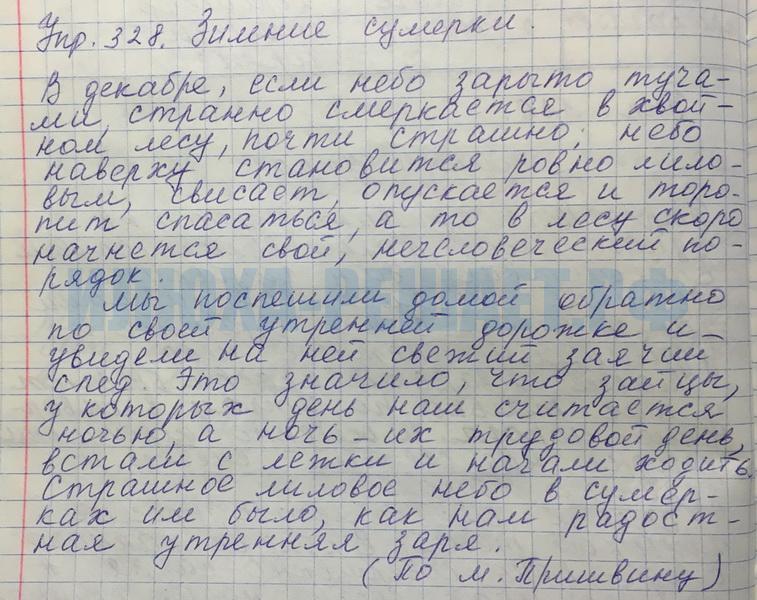 Упр. 328. Зимние сумерки.
В декабре, если небо зарыто туча-
ми, странно смеркается в хвой-
ном лесу, почти страшно; небо
наверху становится ровно лило-
вым, свисает, опускается и торо-
пит спасаться, а то в лесу скоро
начнется свой, нечеловеческий по-
рядок.
Мы поспешили домой обратно
по своей утренней дорожке и
увидели на ней свежий заячий
след. Это значило, что зайцы,
у которых день наш считается
ночью, а ночь - их трудовой день,
встали с лежки и начали ходить.
Страшное лиловое небо в сумер-
ках им было, как нам радост-
ная утренняя заря.
(По М. Пришвину)